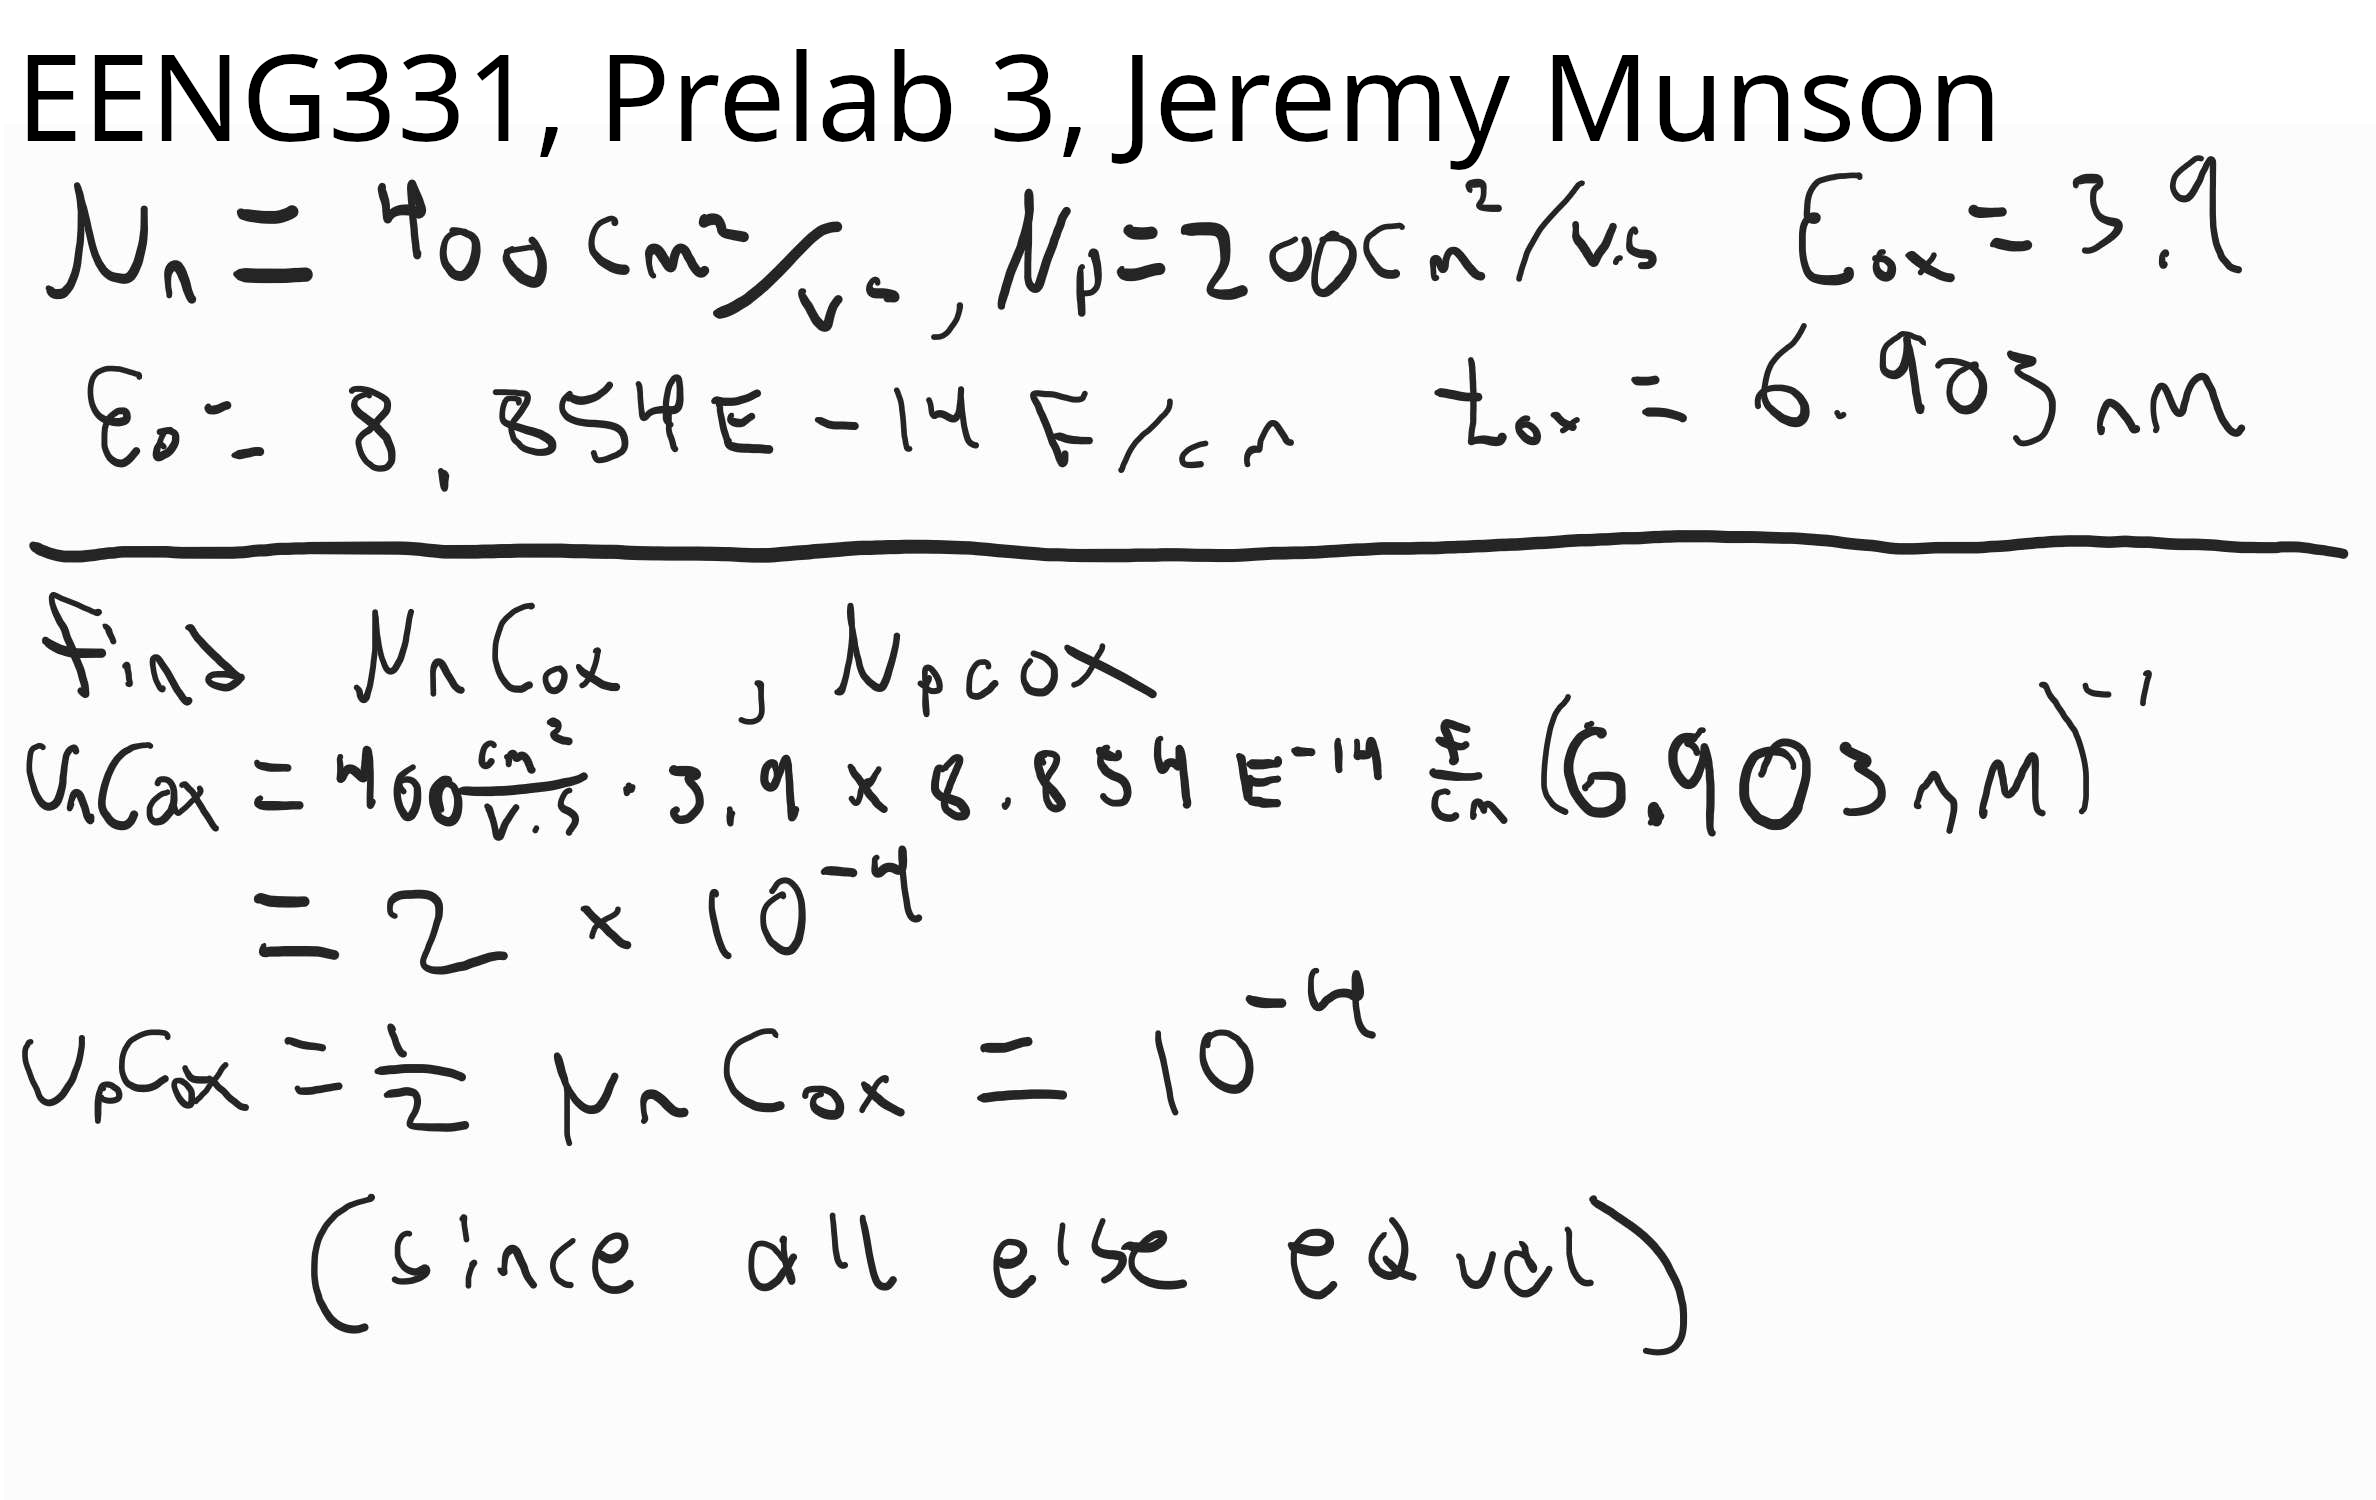 EENG331, Prelab 3, Jeremy Munson
μn = 400 cm²/vs, μp = 200cm²/vs εox = 3.9
ε0 = 8.854E-14 F/cm tox = 6.903nm
Find μnCox, μpcox
μnCox = 400 cm²/v.s · 3.9 x 8.854 E^-14 F/cm (6.903nm)^-1
= 2 x 10^-4
μpCox = 1/2 μnCox = 10^-4
(since all else equal)